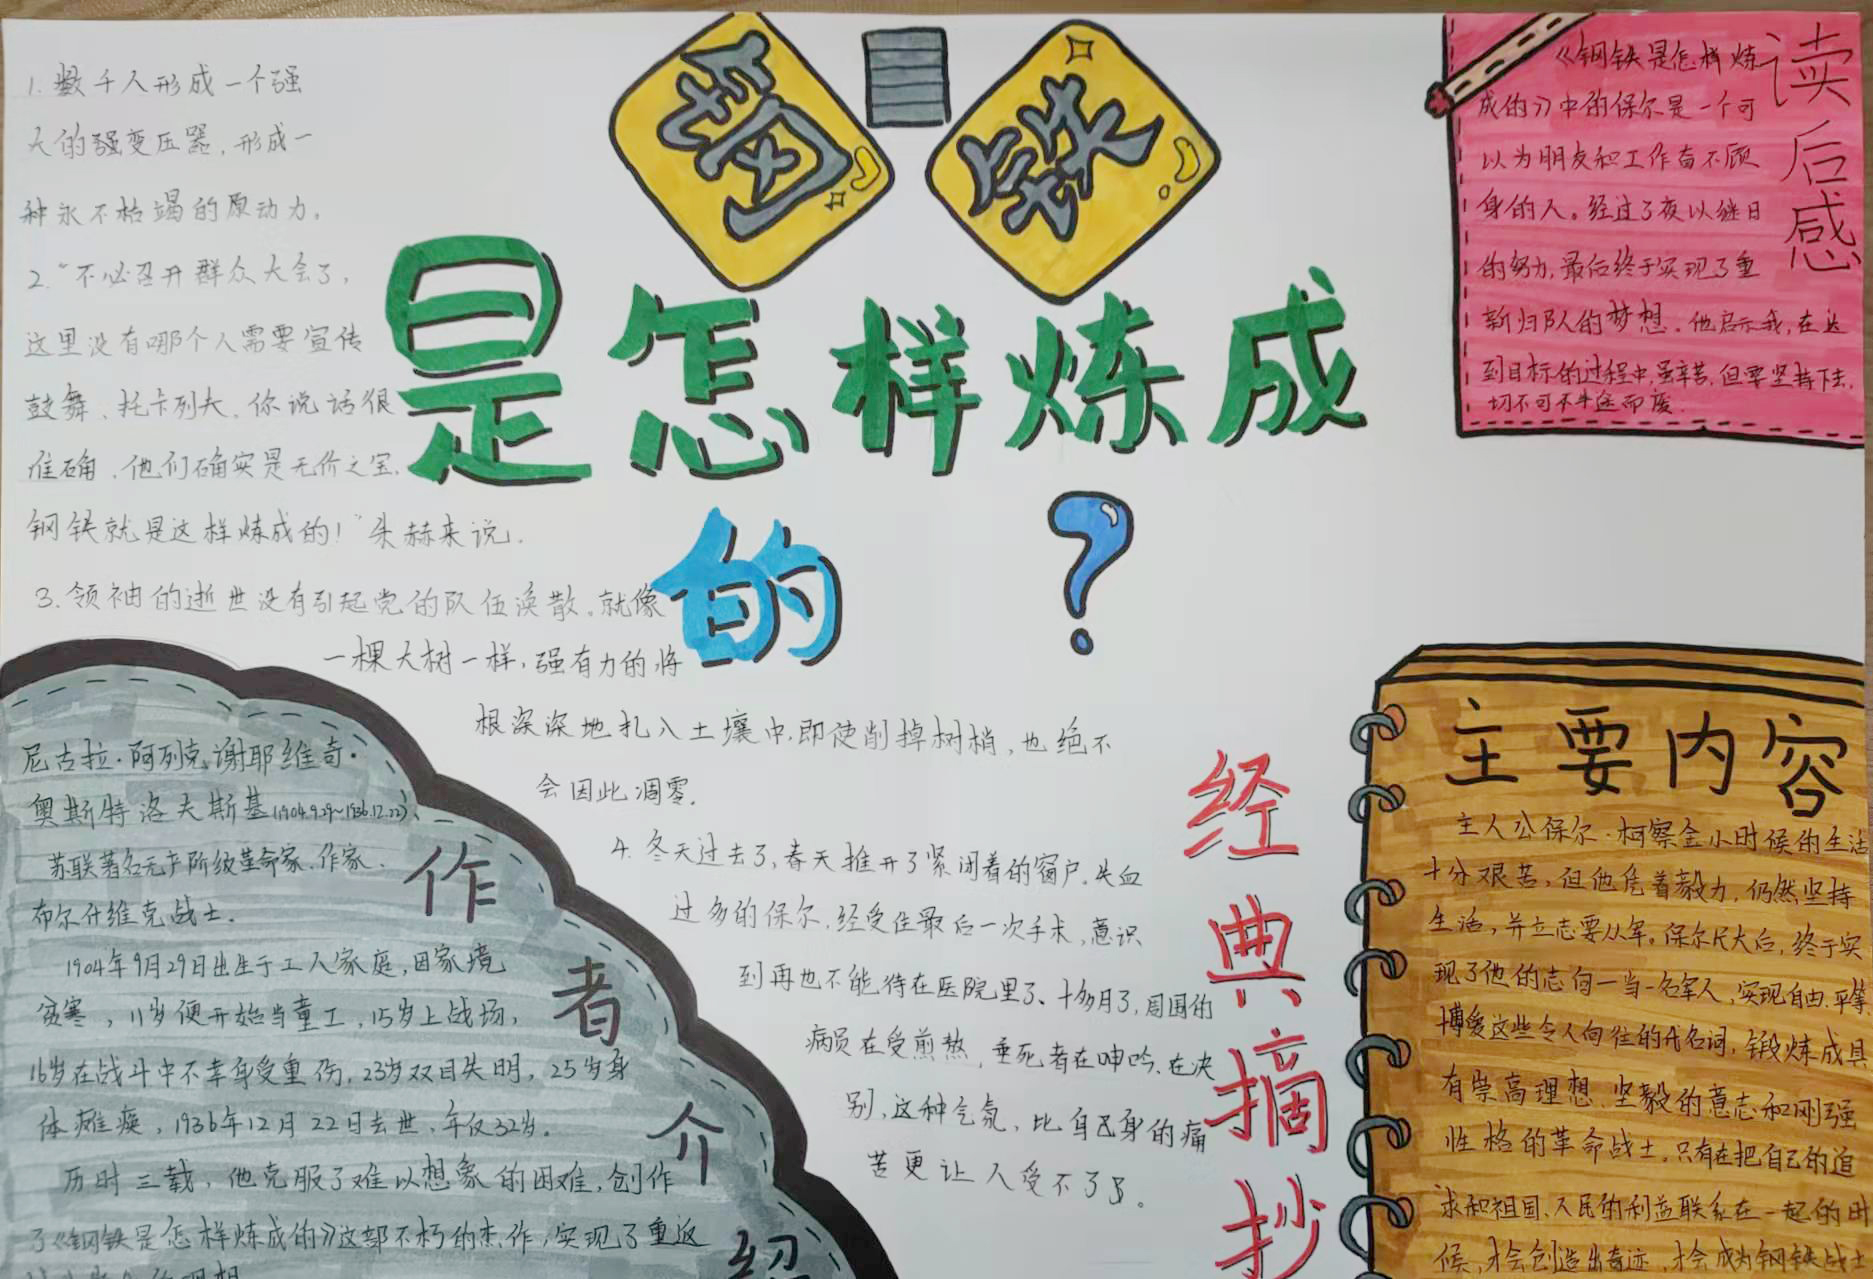 钢铁
是怎样炼成
的？
1.数千人形成一个强
大的强变压器,形成一
种永不枯竭的原动力。
2."不必召开群众大会了,
这里没有哪个人需要宣传
鼓舞、托卡列夫、你说话很
准确、他们确实是无价之宝,
钢铁就是这样炼成的!"朱赫来说.
3.领袖的逝世没有引起党的队伍涣散。就像
一棵大树一样,强有力的,将
根深深地扎入土壤中,即使削掉树梢,也绝不
会因此凋零.
4.冬天过去了,春天推开了紧闭着的窗户.失血
过多的保尔,经受住最后一次手术,意识
到再也不能待在医院里了、十多月了,周围的
病员在受煎熬,垂死者在呻吟.在决
别,这种气氛,比自己身的痛
苦更让人受不了了。
经典摘抄
读后感
《钢铁是怎样炼
成的》中的保尔是一个可
以为朋友和工作奋不顾
身的人。经过了夜以继日
的努力,最后终于实现了重
新归队的梦想.他启示我,在达
到目标的过程中,虽辛苦,但要坚持下去,
切不可半途而废.
作者介绍
尼古拉·阿列克谢耶维奇·
奥斯特洛夫斯基(1904.9.29~1936.12.22)、
苏联著名无产阶级革命家.作家.
布尔什维克战士.
1904年9月29日出生于工人家庭,因家境
贫寒,11岁便开始当童工,15岁上战场,
16岁在战斗中不幸身受重伤,23岁双目失明,25岁身
体瘫痪,1936年12月22日去世、年仅32岁.
历时三载,他克服了难以想象的困难,创作
了《钢铁是怎样炼成的》这部不朽的杰作,实现了重返
理想
主要内容
主人公保尔·柯察金小时候的生活
十分艰苦,但他凭着毅力,仍然坚持
生活,并立志要从军。保尔长大后,终于实
现了他的志向一当一名军人,实现自由.平等
博爱这些令人向往的代名词,锻炼成具
有崇高理想、坚毅的意志和刚强
性格的革命战士。只有在把自己的追
求和祖国、人民的利益联系在一起的时
候,才会创造出奇迹,才会成为钢铁战士